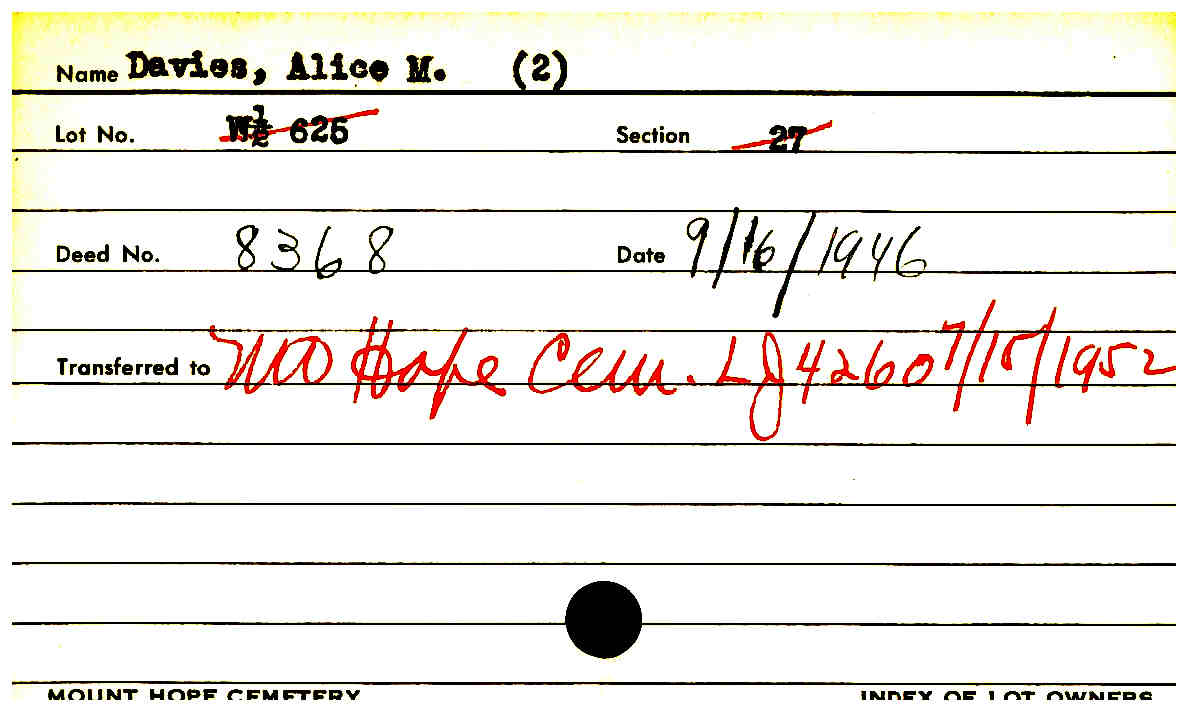 Name Davies, Alice M. (2)
Lot No. W½ 625 Section 27
Deed No. 8368 Date 9/16/1946
Transferred to Mt Hope Cem. LJ 4260 7/15/1952
MOUNT HOPE CEMETERY INDEX OF LOT OWNERS